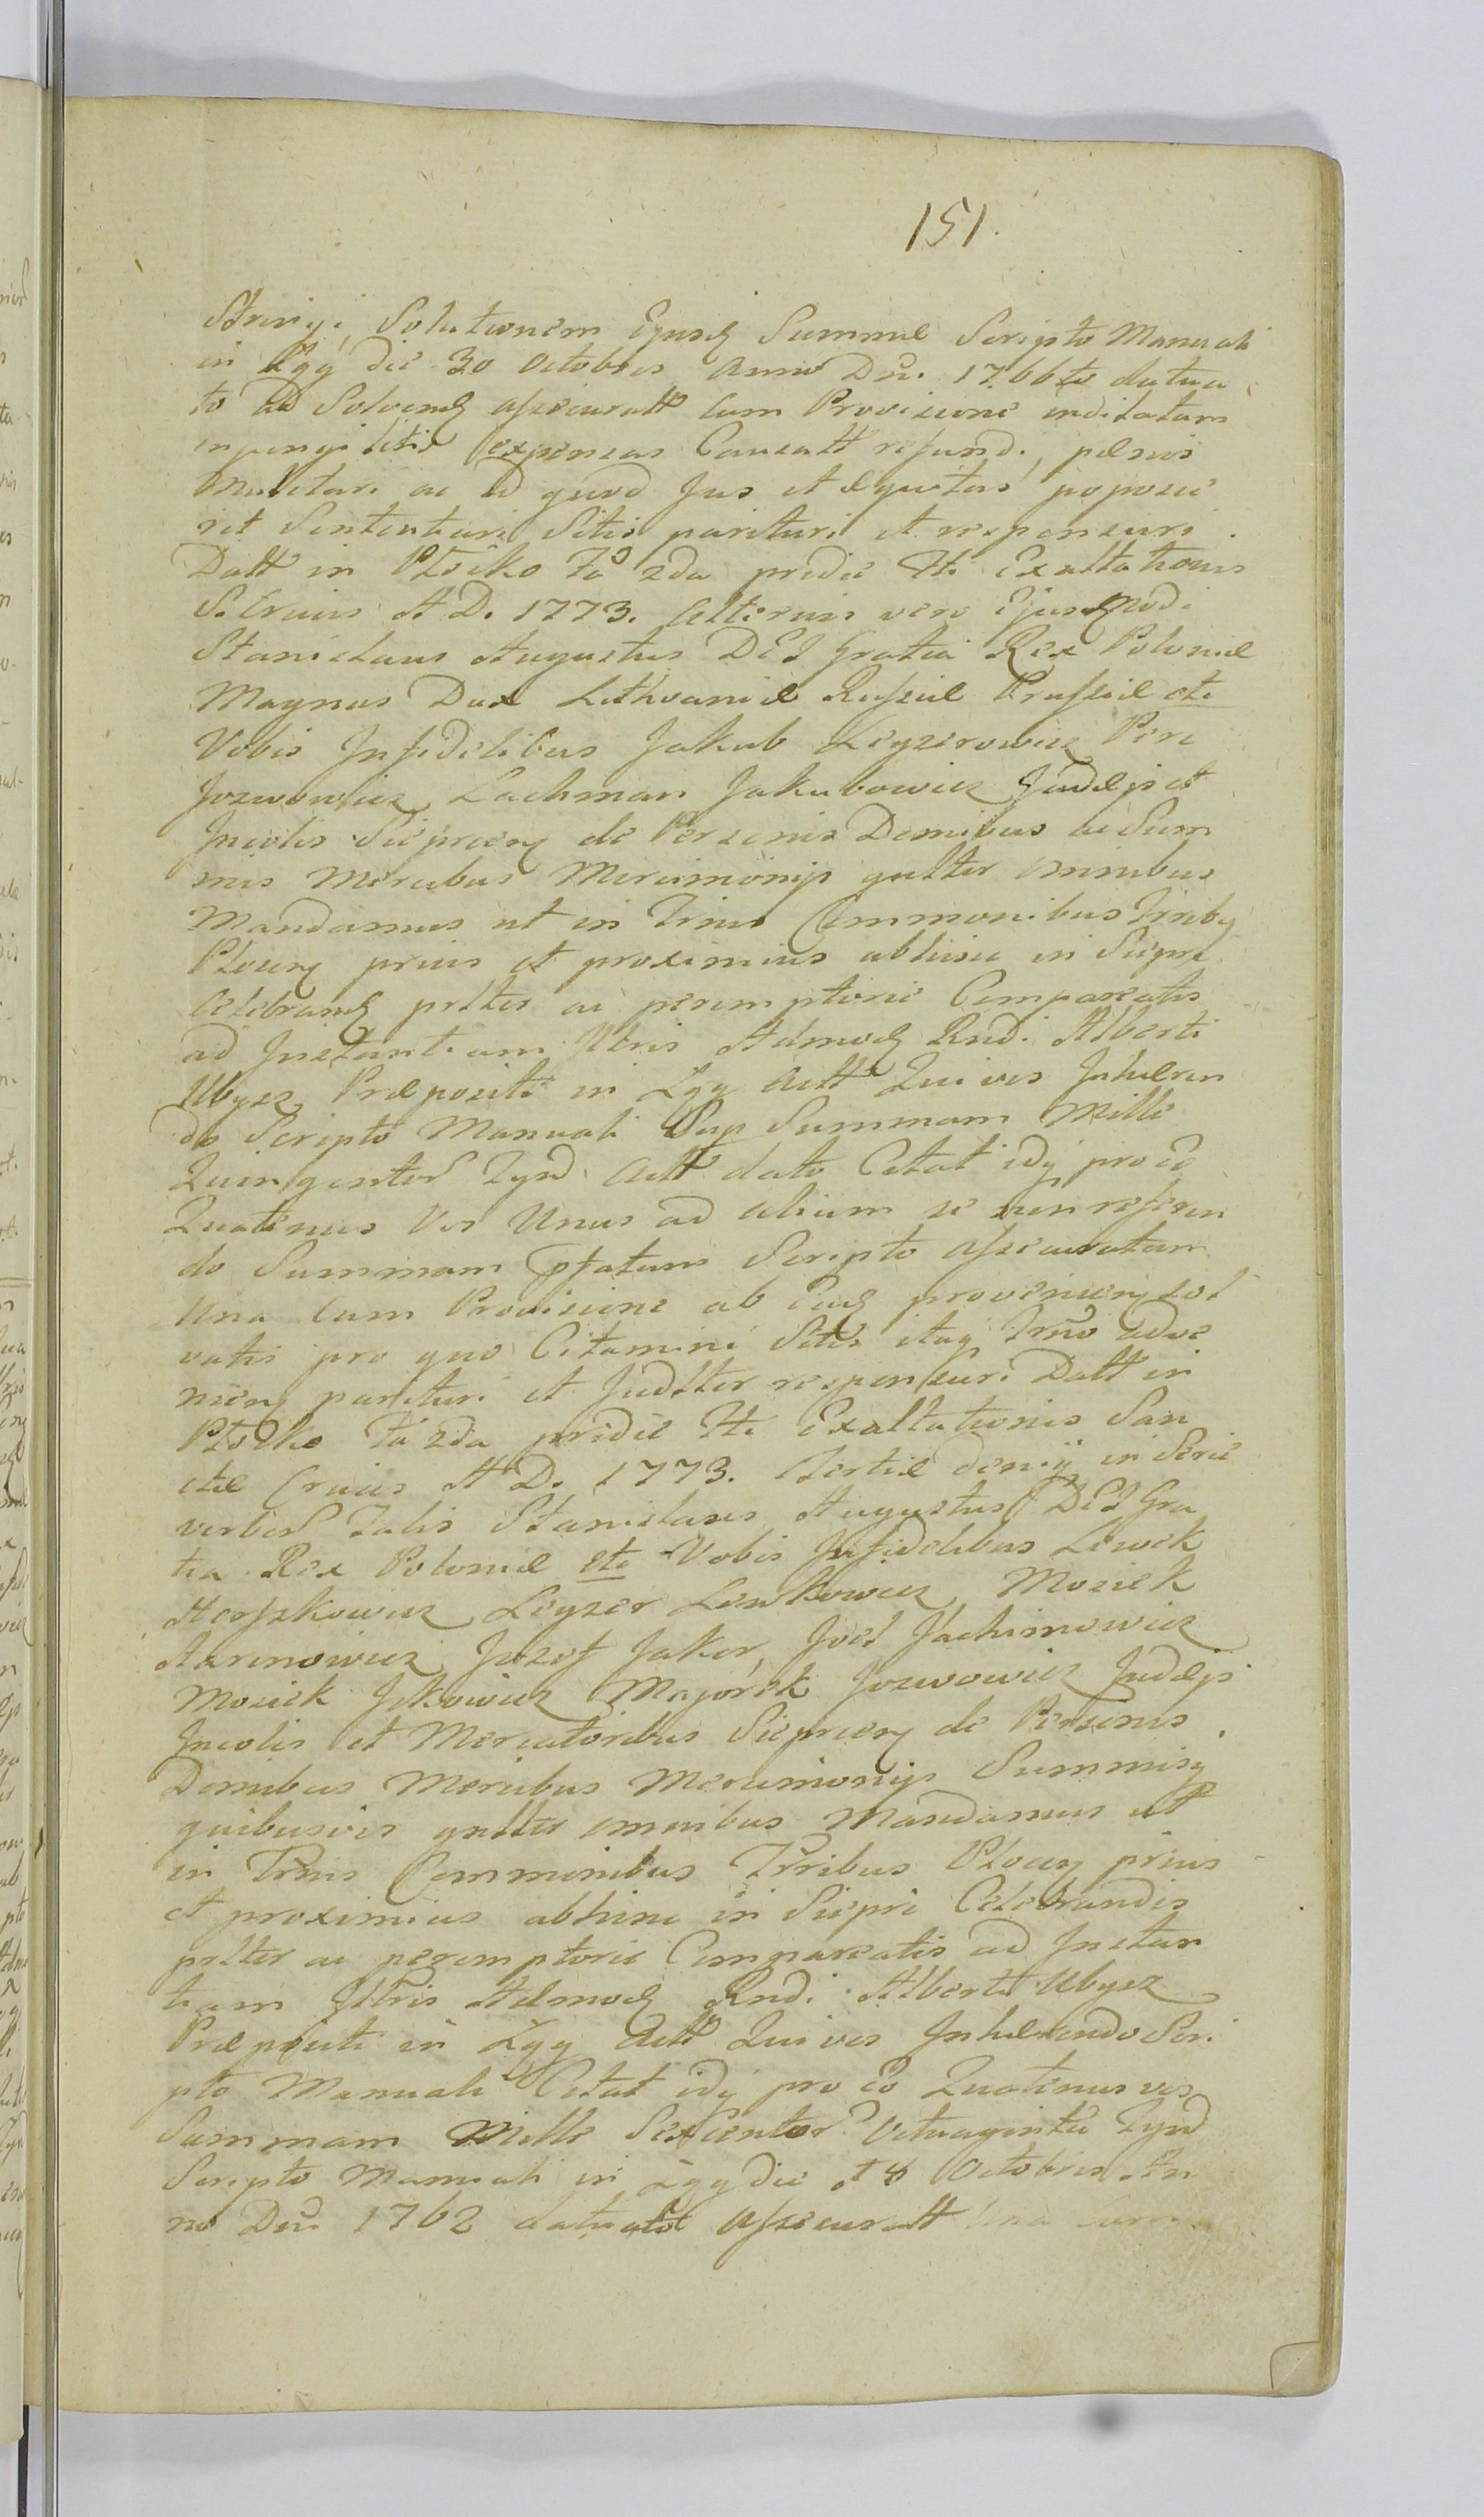 151.
Stringi, Solutionem Ejusd Summæ Scripto Manuali
in Łgy die 30 Octobris Anno Dni 1766to datua
to ad Solvend assecuratt Cum Provisione
expensas Causatt refundi, pænis
Mulctari ac ad quod Jus et æquitas poposce
rit Sententiari Sitis parituri et responsuri.
Datt in Płocko Fa 2da pridie Fti Exaltationis
S. Crucis A D. 1773. Alterius vero Ejusdmodi
Stanislaus Augustus DEI Gratia Rex Poloniæ
Magnus Dux Lithvaniæ Russiæ Prussiæ etc
Vobis Infidelibus Jakub Leyzerowicz Perc
Jozwowicz Lachman Jakubowicz Judæis et
Incolis Sieprceng de Personis Domibus ac Sum
mis Mercibus Mercimonijs gnltter omnibus
Mandamus ut in Trnis Commonibus Trrib9
Plocen prius et proximius abhinc in Sieprc
Celebrand prltter ac peremptorie Compareatis
ad Instantiam Illtris Admod Rndi Alberti
Ubysz Præpositi in Łgy Actt Qui vos Inhæren
do Scripto Manuali Sup Summam Mille
Quingentor Tynf. Actt dato Citat idq pro eo
Quatenus Vos Unus ad alium se non referen
do Summam pfatam Scripto assecuratam
Una Cum Provisione ab Ead provenien sol
vatis pro quo Citamini Sitis itaq Trno adve
nien parituri et Judltter responsuri Datt in
Płocko Fa 2da pridie Fti Exaltationis San
ctæ Crucis A D. 1773. Tertiæ deniq in Serie
verbor Talis Stanislaus Augustus DEI Gra
tia Rex Poloniæ etc Vobis Infidelibus Lewek
Herszkowicz Leyzer Lewkowicz, Mosiek
Aaronowicz Jozef Jakor, Joel Jachimowicz
Mosiek Jckowicz Majorek Jozwowicz Judæis
Incolis et Mercatoribus Sieprcen de Personis
Domibus Mercibus Mercimonijs Summisq
quibusvis gnltter omnibus Mandamus ut
in Trnis Commonibus Trribus Plocen prius
et proximius abhinc in Sieprc Celebrandis
prltter ac peremptorie Compareatis ad Instan
tiam Illtris Admod Rndi Alberti Ubysz
Præpositi in Łgy Actt Qui vos Inhærendo Scri
pto Manuali Citat idq pro eo Quatenus vos
Summam Mille Sexcentor Octuaginta Tynf
Scripto Manuali in Łgy die 18 Octobris An
no Dni 1762 assecuratt Una cum